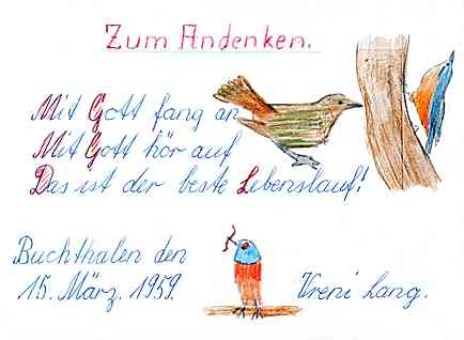 Zum Andenken.
Mit Gott fang an
Mit Gott hör auf
Das ist der beste Lebenslauf!
Buchthalen den
15. März. 1959.
Vreni Lang.